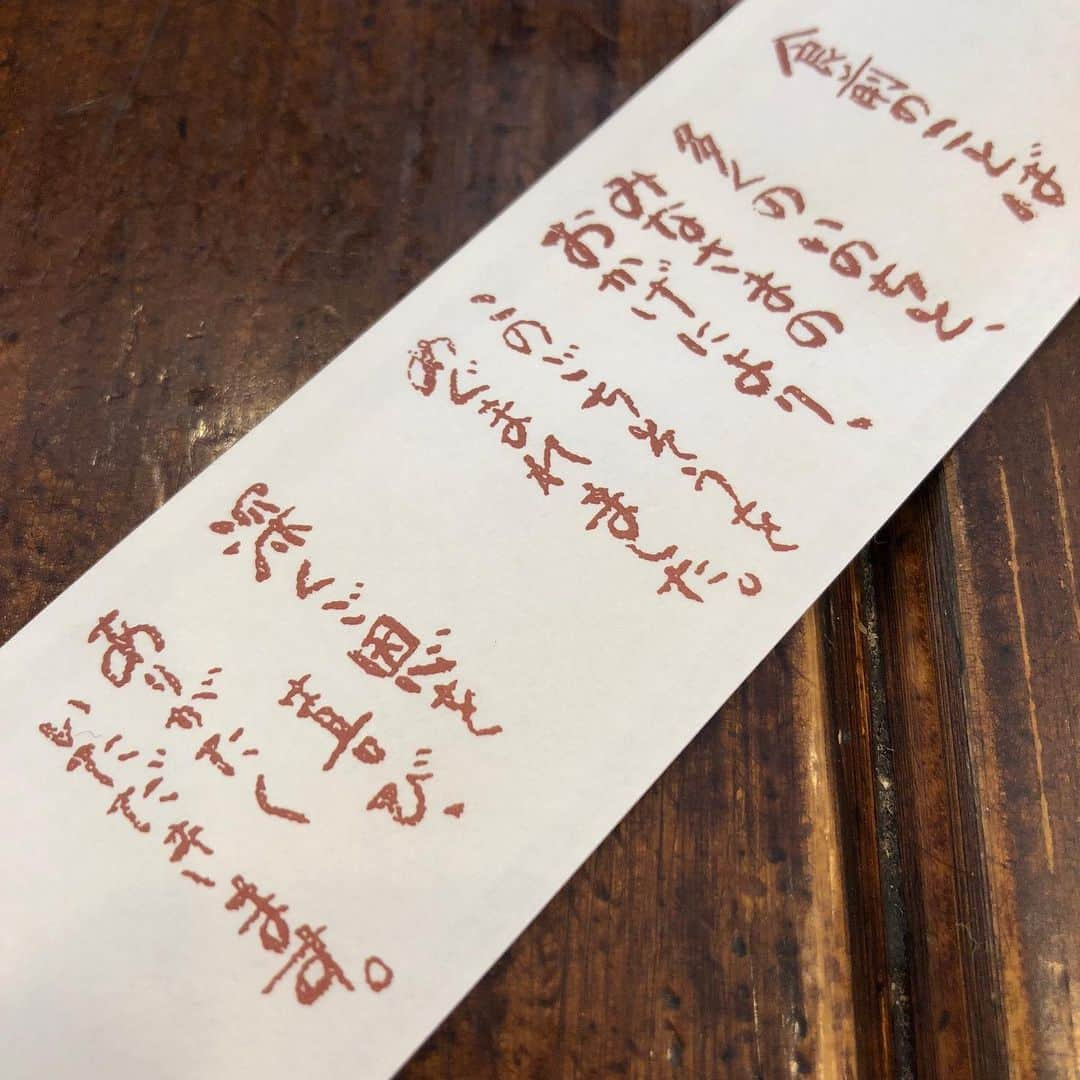 食前のことば
多くのいのちと、
みなさまの
おかげにより、
このごちそうを
めぐまれました。
深くご恩を
喜び、
ありがたく
いただきます。